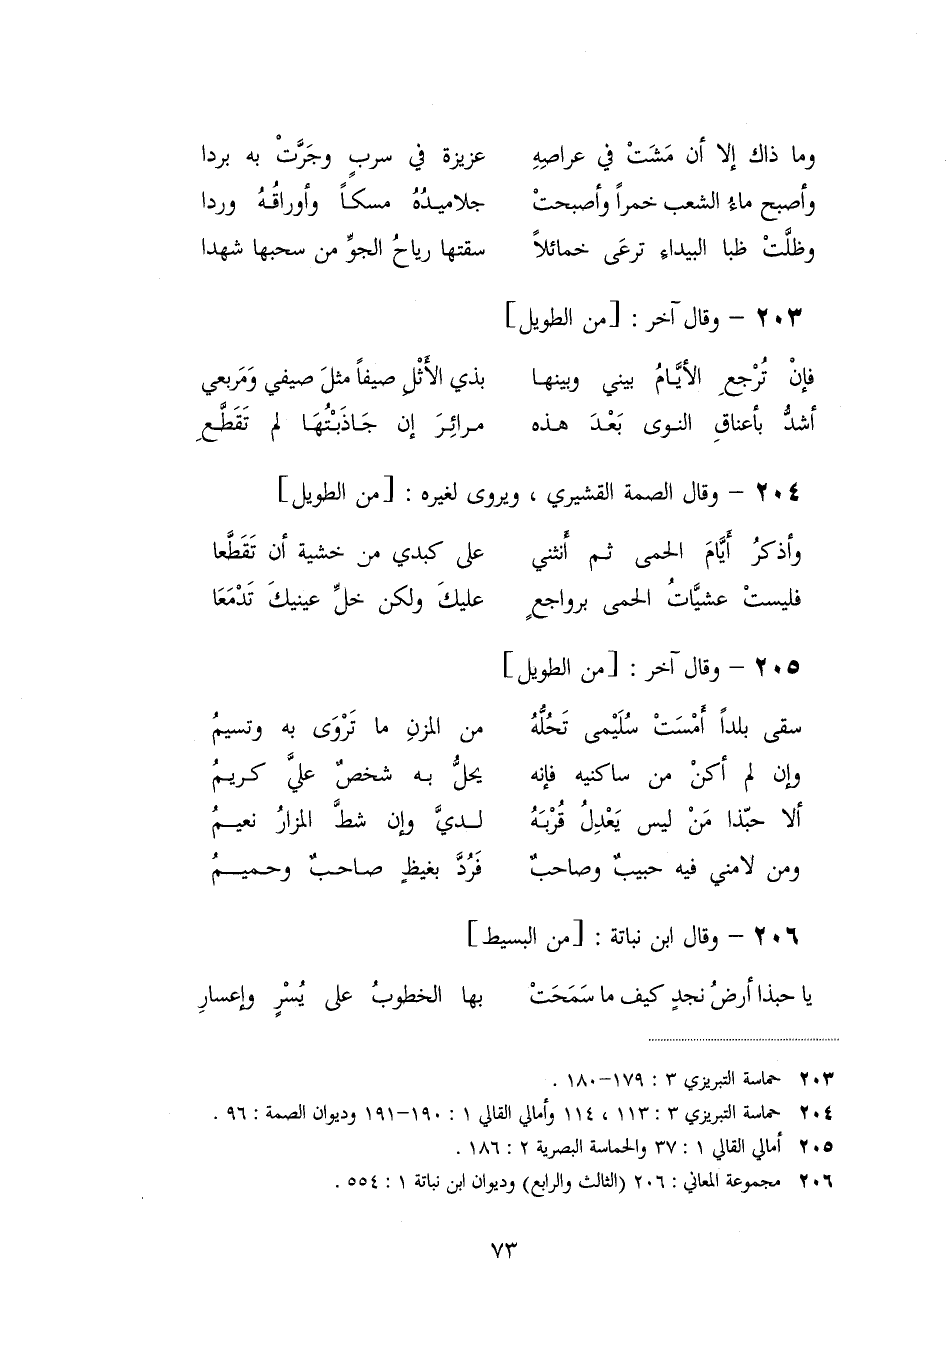 وما ذاك إلا أن مَشَتْ في عراصِهِ عزيزة في سربٍ وجَرَّتْ به بردا
وأصبح ماءُ الشعب خمراً وأصبحتْ جلاميدُهُ مسكاً وأوراقُهُ وردا
وظلَّتْ ظبا البيداءِ ترعَى خمائلاً سقتها رياحُ الجوِّ من سحبها شهدا
٢٠٣ – وقال آخر : [من الطويل]
فإنْ تُرْجعِ الأيَّامُ بيني وبينها بذي الأَثْلِ صيفاً مثلَ صيفي وَمَربعي
أشدُّ بأعناقِ النوى بَعْدَ هذه مرائِرَ إن جَاذَبْتُهَا لم تَقَطَّعِ
٢٠٤ – وقال الصمة القشيري ، ويروى لغيره : [من الطويل]
وأذكرُ أيَّامَ الحمى ثم أَنثني على كبدي من خشية أن تَقَطَّعا
فليستْ عشيَّاتُ الحمى برواجعٍ عليكَ ولكن خلِّ عينيكَ تَدْمَعَا
٢٠٥ – وقال آخر : [من الطويل]
سقى بلداً أَمْسَتْ سُلَيْمى تَحُلُّهُ من المزنِ ما تَرْوَى به وتسيمُ
وإن لم أكنْ من ساكنيه فإنه يحلُّ به شخصٌ عليَّ كريمُ
ألا حبّذا مَنْ ليس يَعْدِلُ قُرْبَهُ لديَّ وإن شطَّ المزارُ نعيمُ
ومن لامني فيه حبيبٌ وصاحبٌ فَرُدَّ بغيظٍ صاحبٌ وحميمُ
٢٠٦ – وقال ابن نباتة : [من البسيط]
يا حبذا أرضُ نجدٍ كيف ما سَمَحَتْ بها الخطوبُ على يُسْرٍ وإعسارِ
٢٠٣ حماسة التبريزي ٣ : ١٧٩–١٨٠ .
٢٠٤ حماسة التبريزي ٣ : ١١٣ ، ١١٤ وأمالي القالي ١ : ١٩٠–١٩١ وديوان الصمة : ٩٦ .
٢٠٥ أمالي القالي ١ : ٣٧ والحماسة البصرية ٢ : ١٨٦ .
٢٠٦ مجموعة المعاني : ٢٠٦ (الثالث والرابع) وديوان ابن نباتة ١ : ٥٥٤ .
٧٣